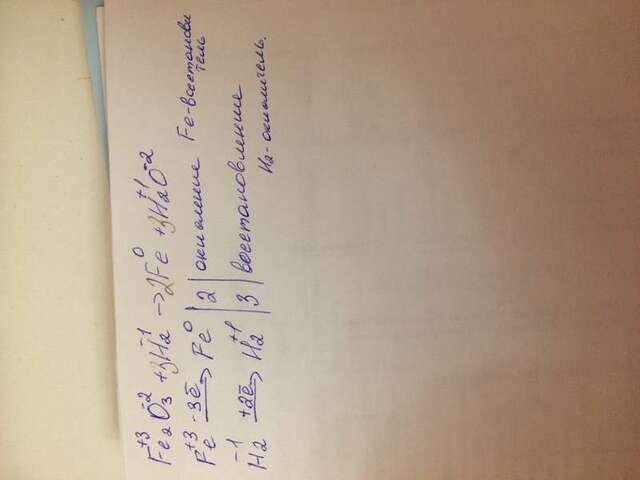 Fe₂⁺³O₃⁻² + 3H₂⁻¹ → 2Fe⁰ + 3H₂⁺¹O⁻²
Fe⁺³ -3ē → Fe⁰ | 2 | окисление Fe-восстановитель
H₂⁻¹ +2ē → H₂⁺¹ | 3 | восстановление
H₂-окислитель.